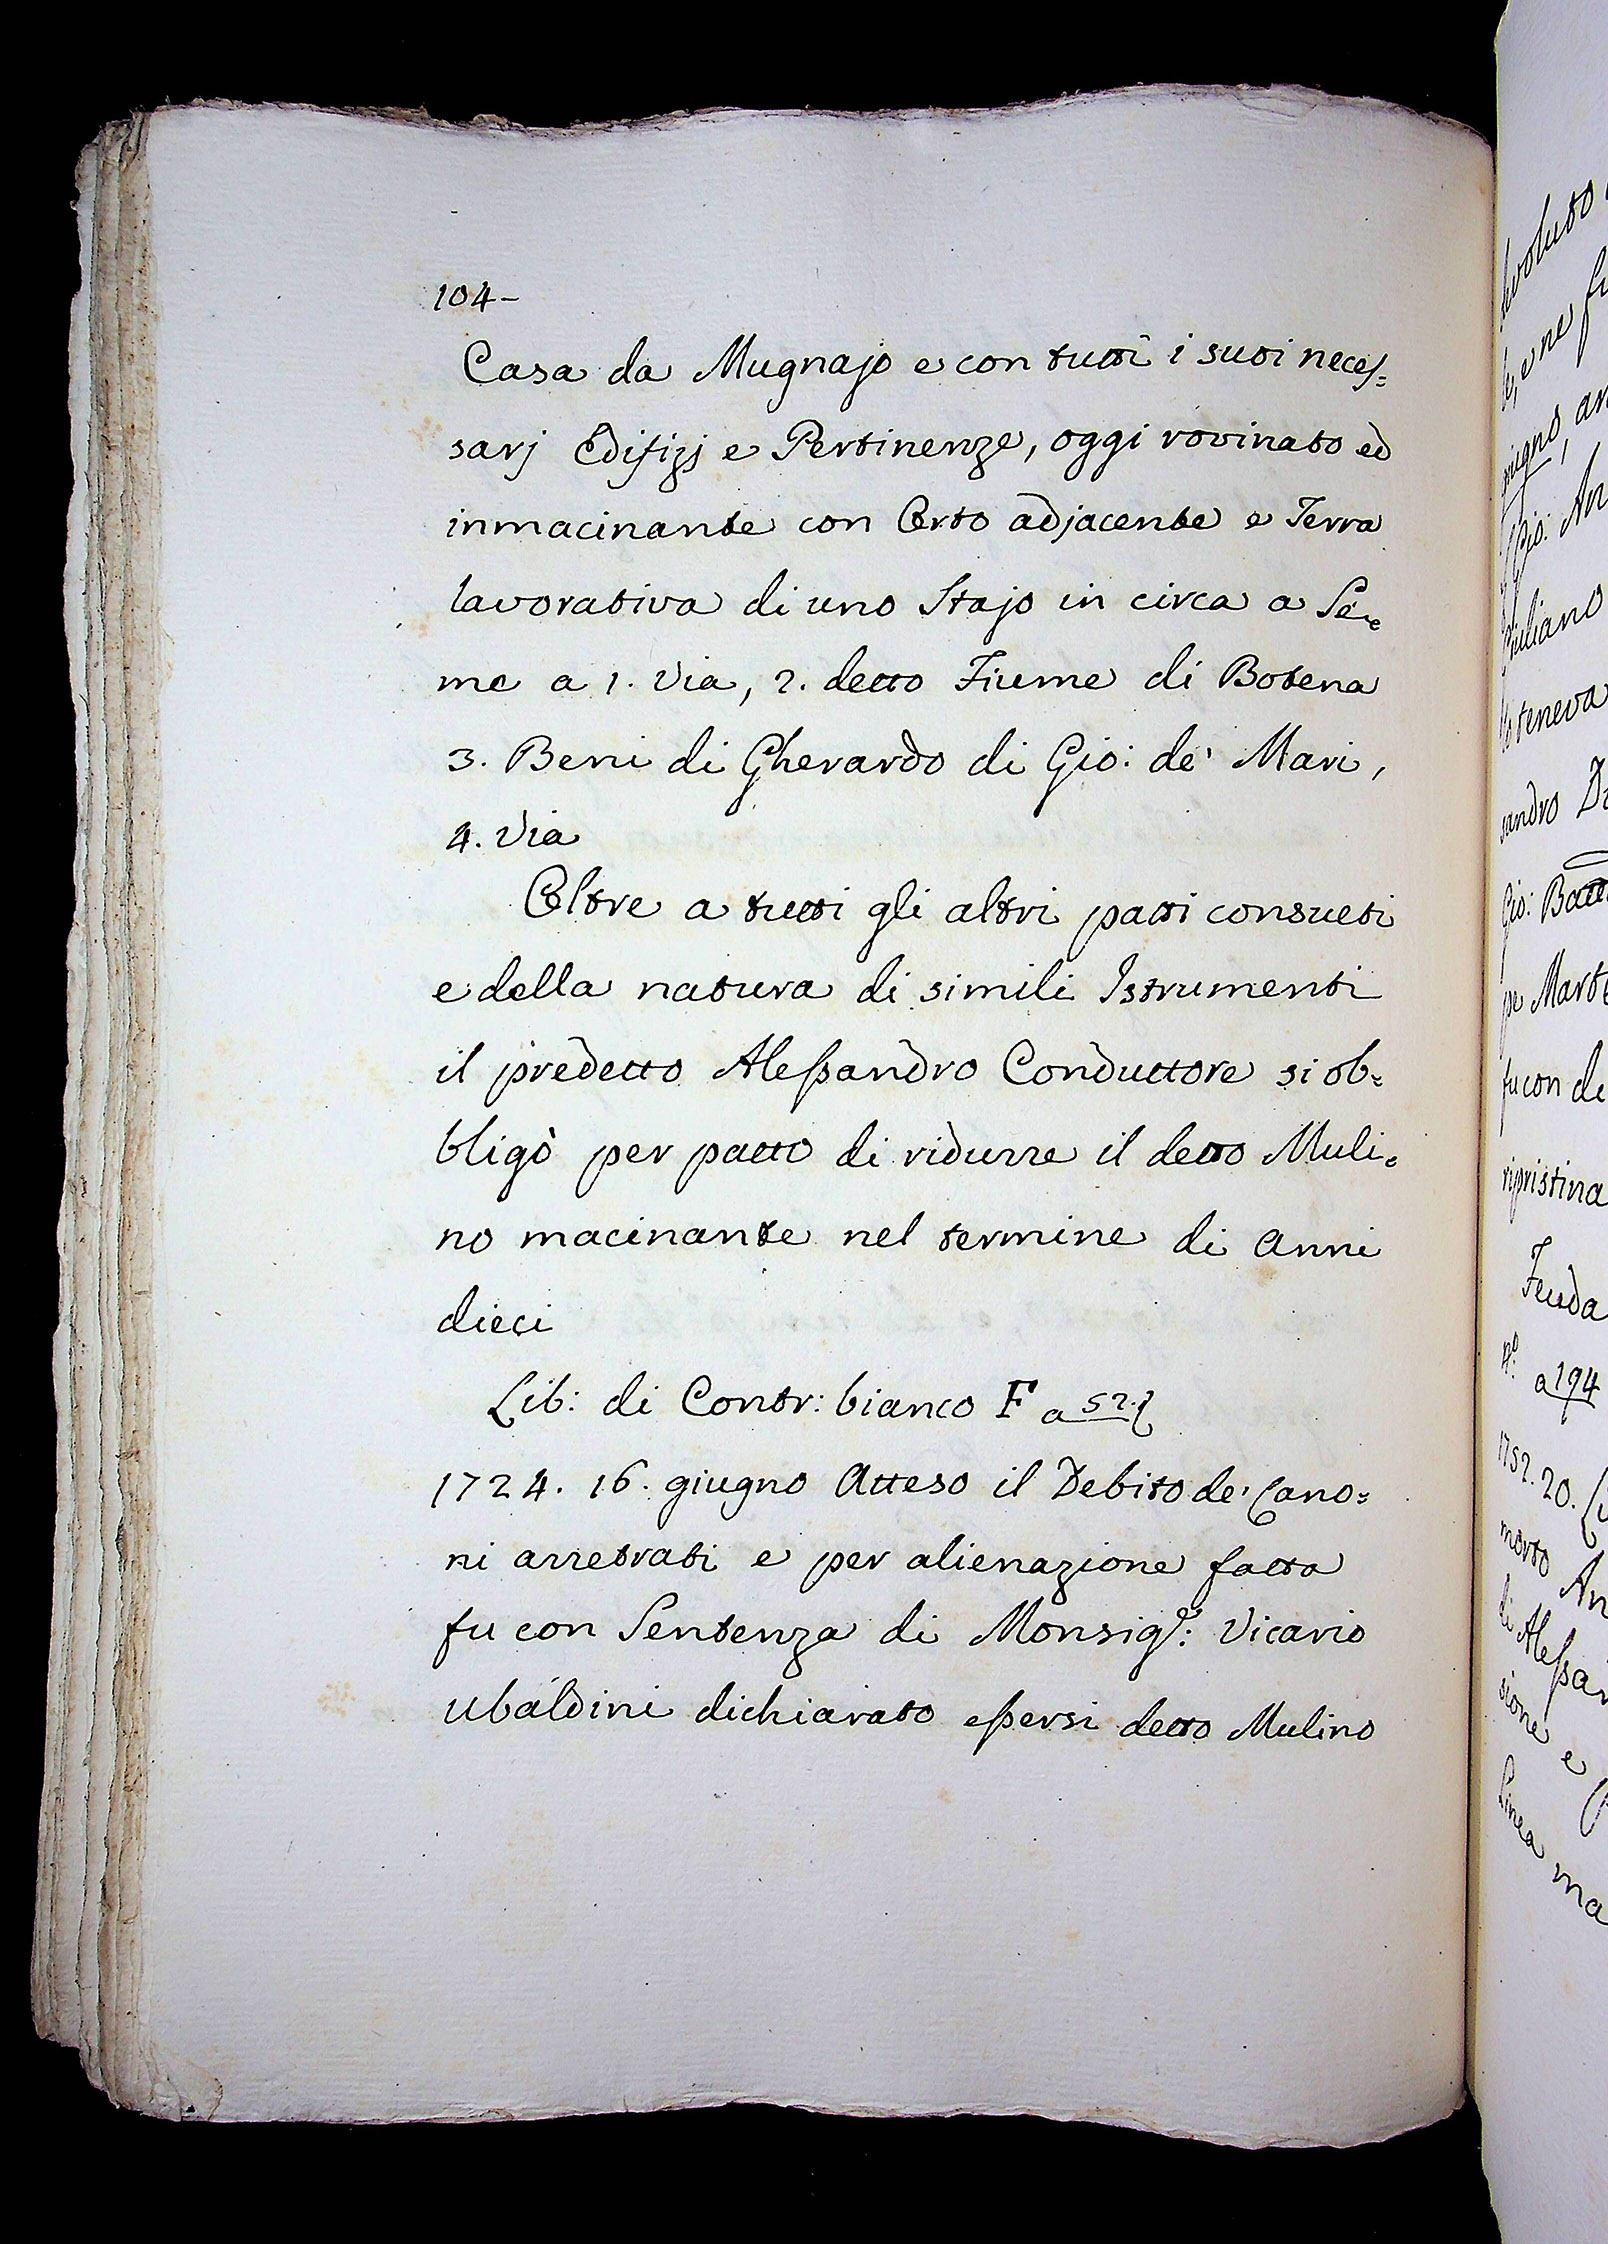 104-
Casa da Mugnajo e con tutti i suoi neces=
sarj Edifizj e Pertinenze, oggi rovinato ed
inmacinante con Orto adjacente e Terra
lavorativa di uno Stajo in circa a Se=
me a 1. Via, 2. detto Fiume di Botena
3. Beni di Gherardo di Gio: de' Mari,
4. Via
Oltre a tutti gli altri patti consueti
e della natura di simili Istrumenti
il predetto Alessandro Conduttore si ob=
bligò per patto di ridurre il detto Muli=
no macinante nel termine di Anni
dieci
Lib: di Contr: bianco F a 52.
1724. 16. giugno Atteso il Debito de' Cano=
ni arretrati e per alienazione fatta
fu con Sentenza di Monsigr: Vicario
Ubaldini dichiarato essersi detto Mulino
devoluto
e ne fu
Gio: An
Giuliano
teneva
sandro
Gio: Batt
pe Mart
fu con de
ripristina
Feuda
4o: a 194
1752. 20.
morto An
di Alessan
sione e
Linea ma